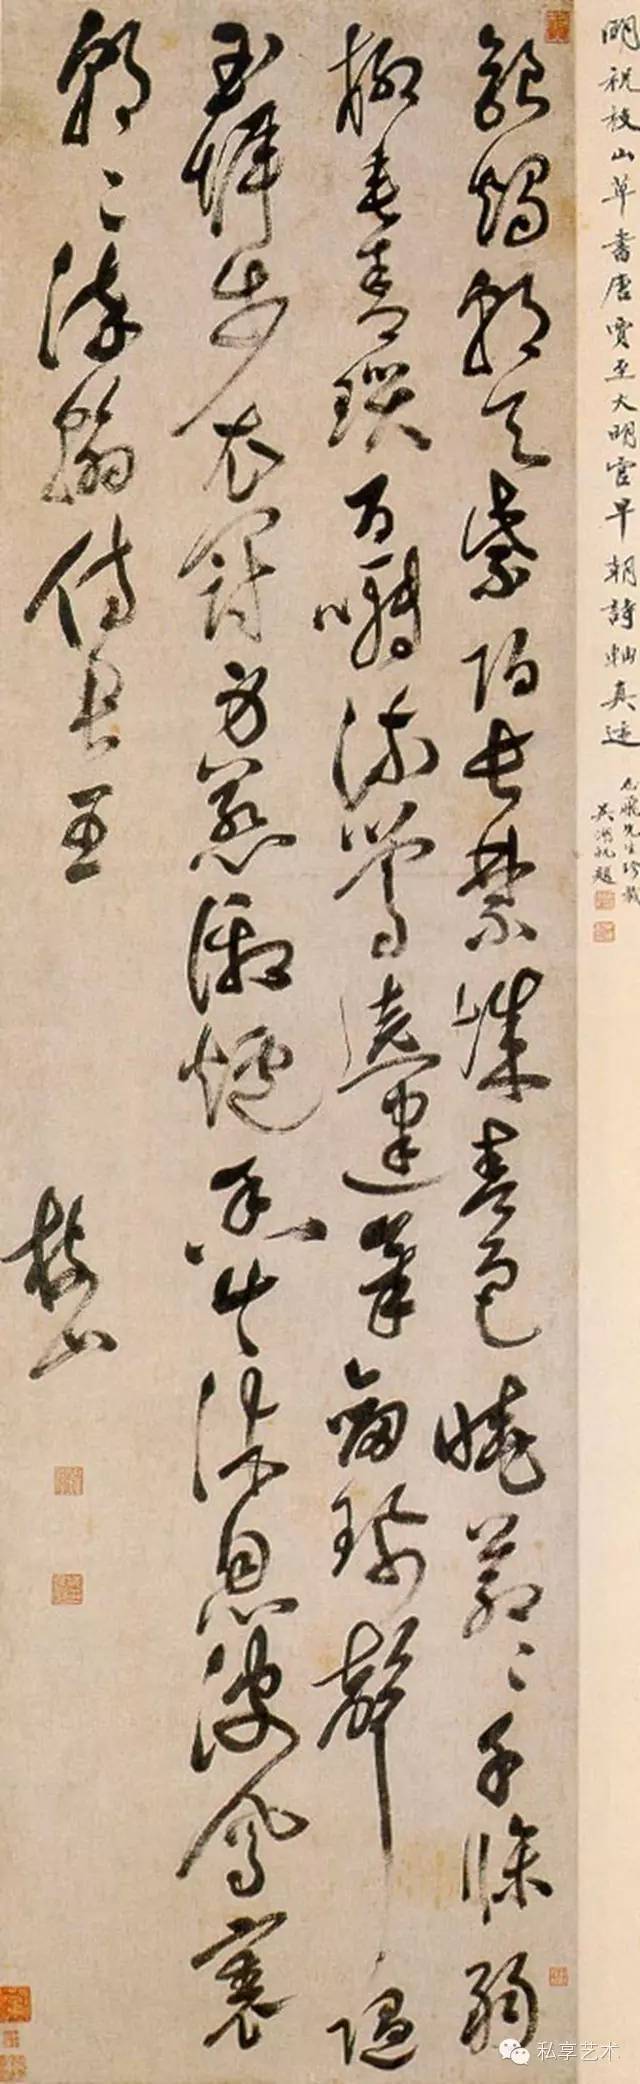 明祝枝山草書唐賈至大明宮早朝詩軸真迹
先生珍藏
吳湖帆題
銀燭朝天紫陌長禁城春色曉蒼〻千條弱
柳垂青瑣百囀流鶯遶建章劍珮聲隨
玉墀步衣冠身惹御爐香共沐恩波鳳裏
朝〻染翰侍君王
枝山
私享艺术